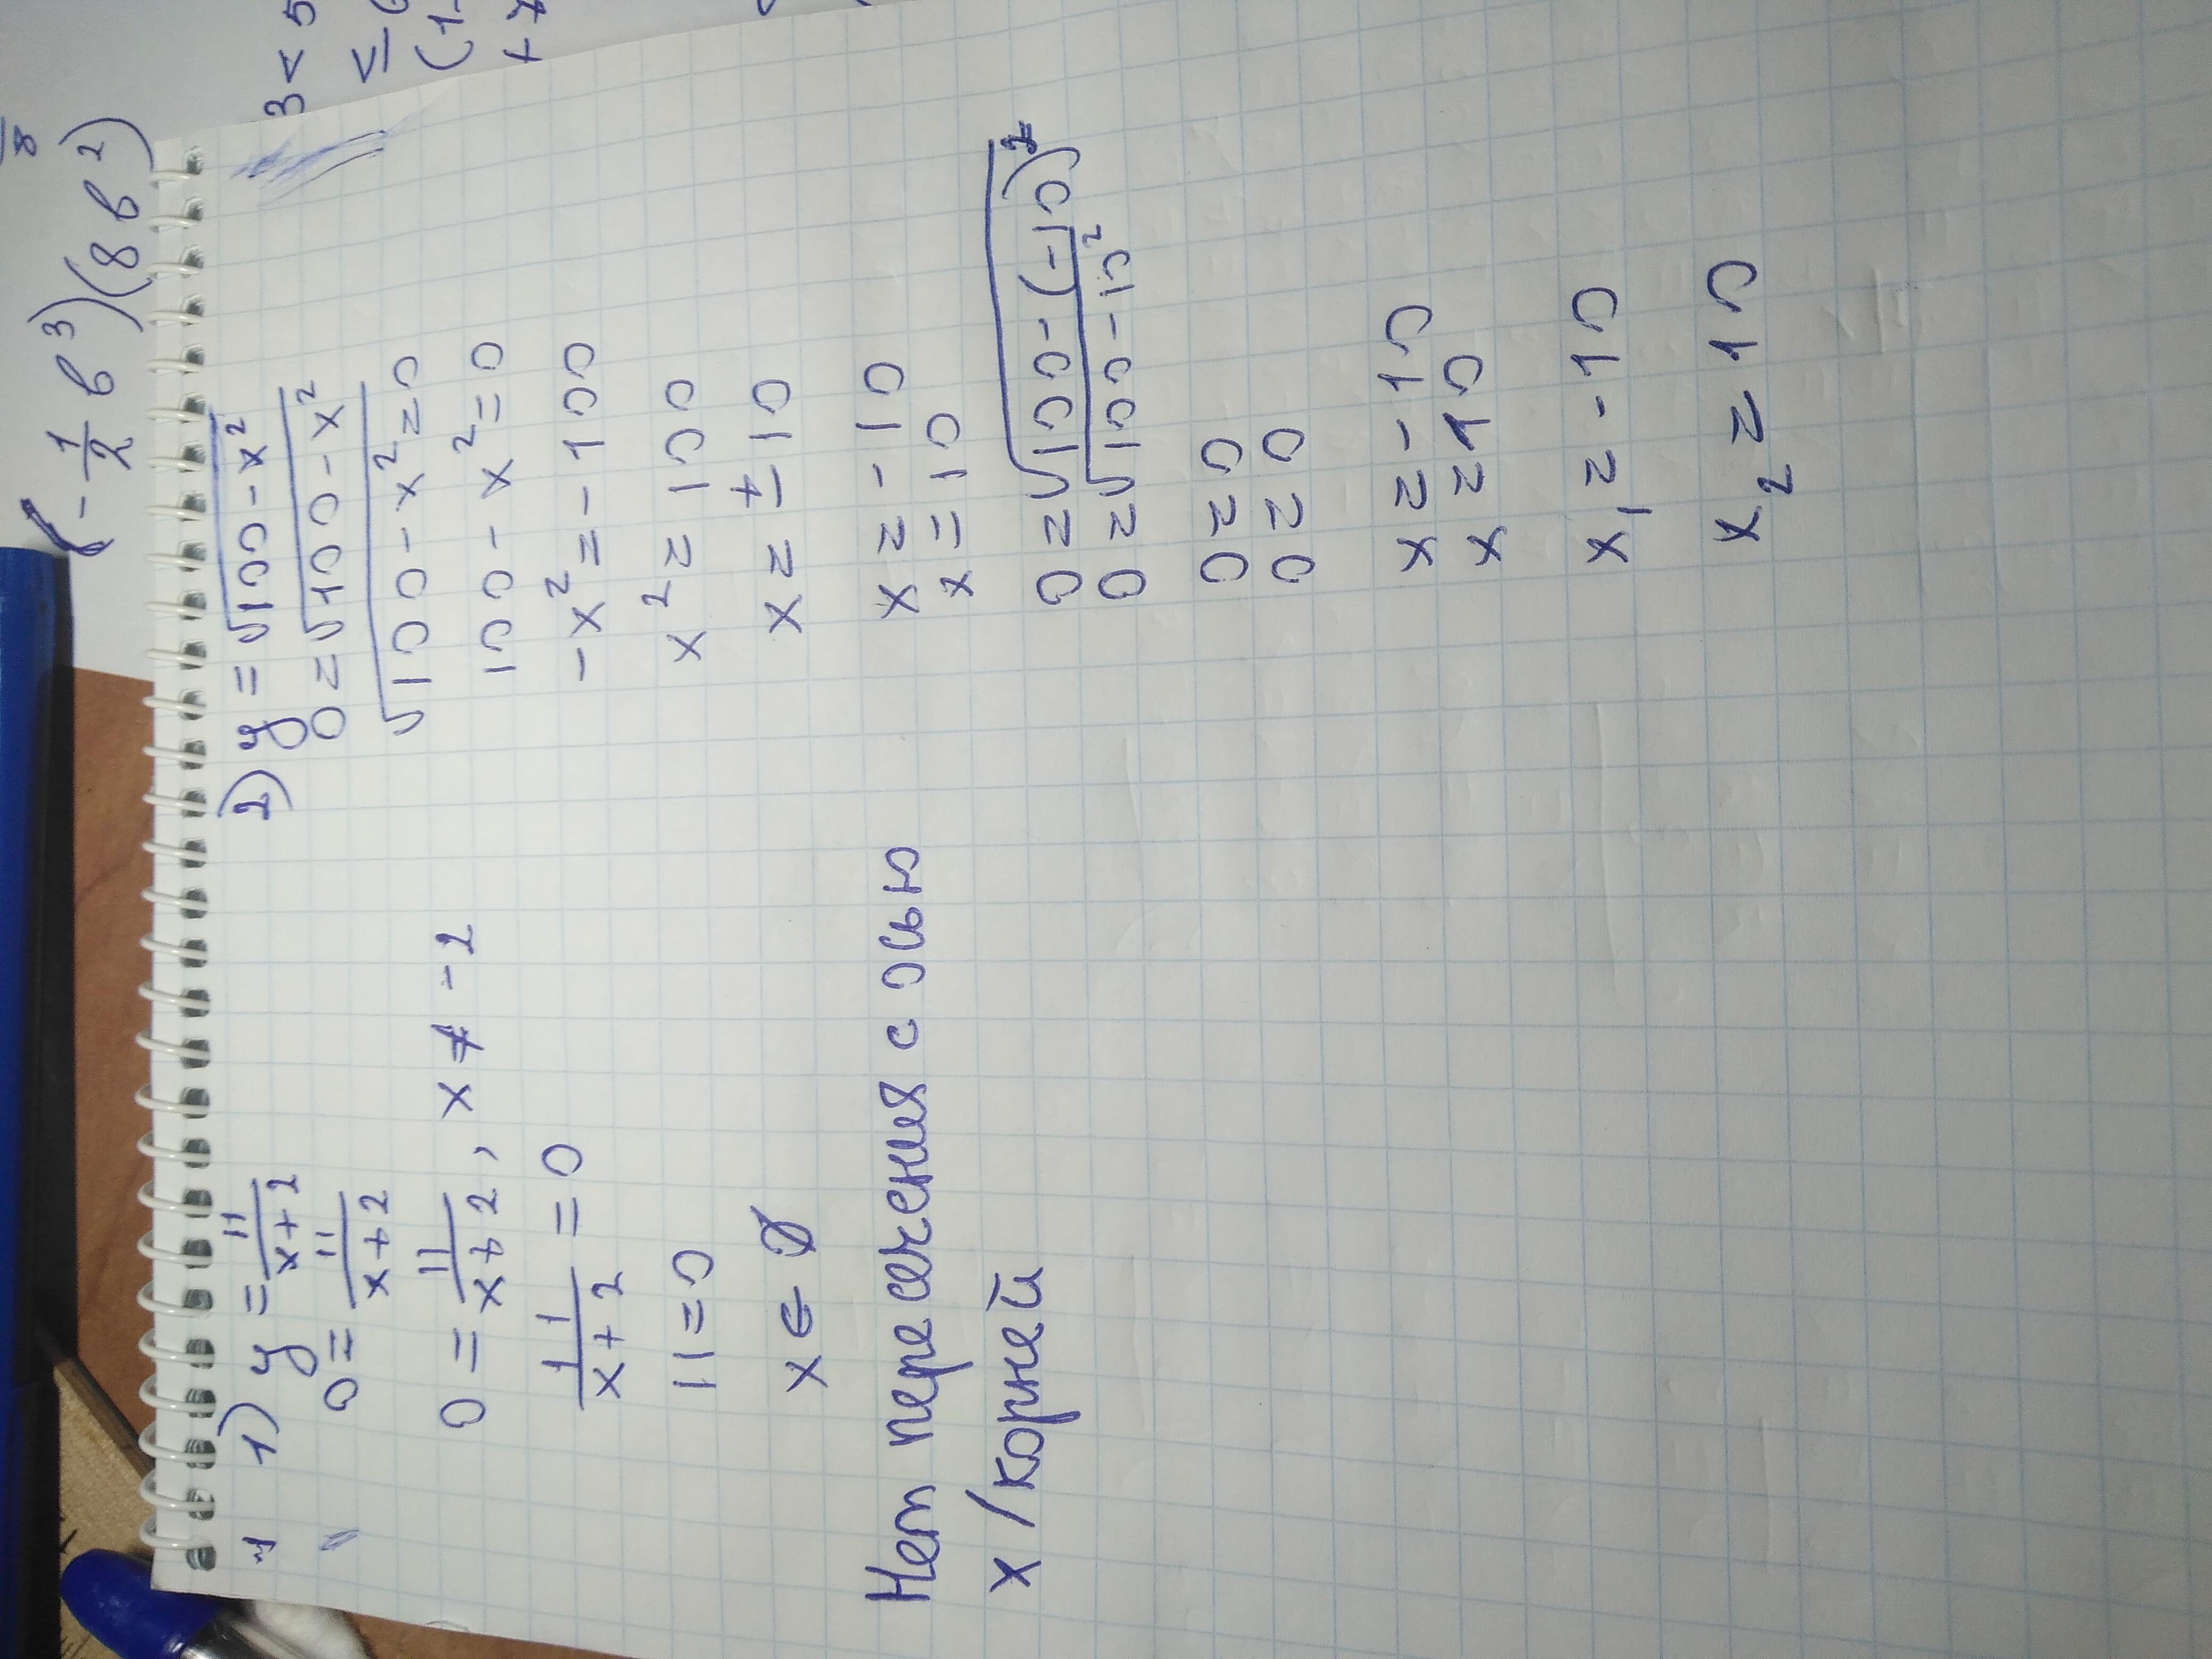 (-1/2 b³)(8b²)
3 < 5
≤
(1-
+
1) y = 11/(x+2)
0 = 11/(x+2)
0 = 11/(x+2), x ≠ -2
11/(x+2) = 0
11=0
x ∈ Ø
Нет пересечения с осью
x / корней
2) y = √(100-x²)
0 = √(100-x²)
√(100-x²)=0
100-x²=0
-x²=-100
x²=100
x=±10
x=-10
x=10
0=√(100-(-10)²)
0=√(100-10²)
0=0
0=0
x=-10
x=10
x₁=-10
x₂=10